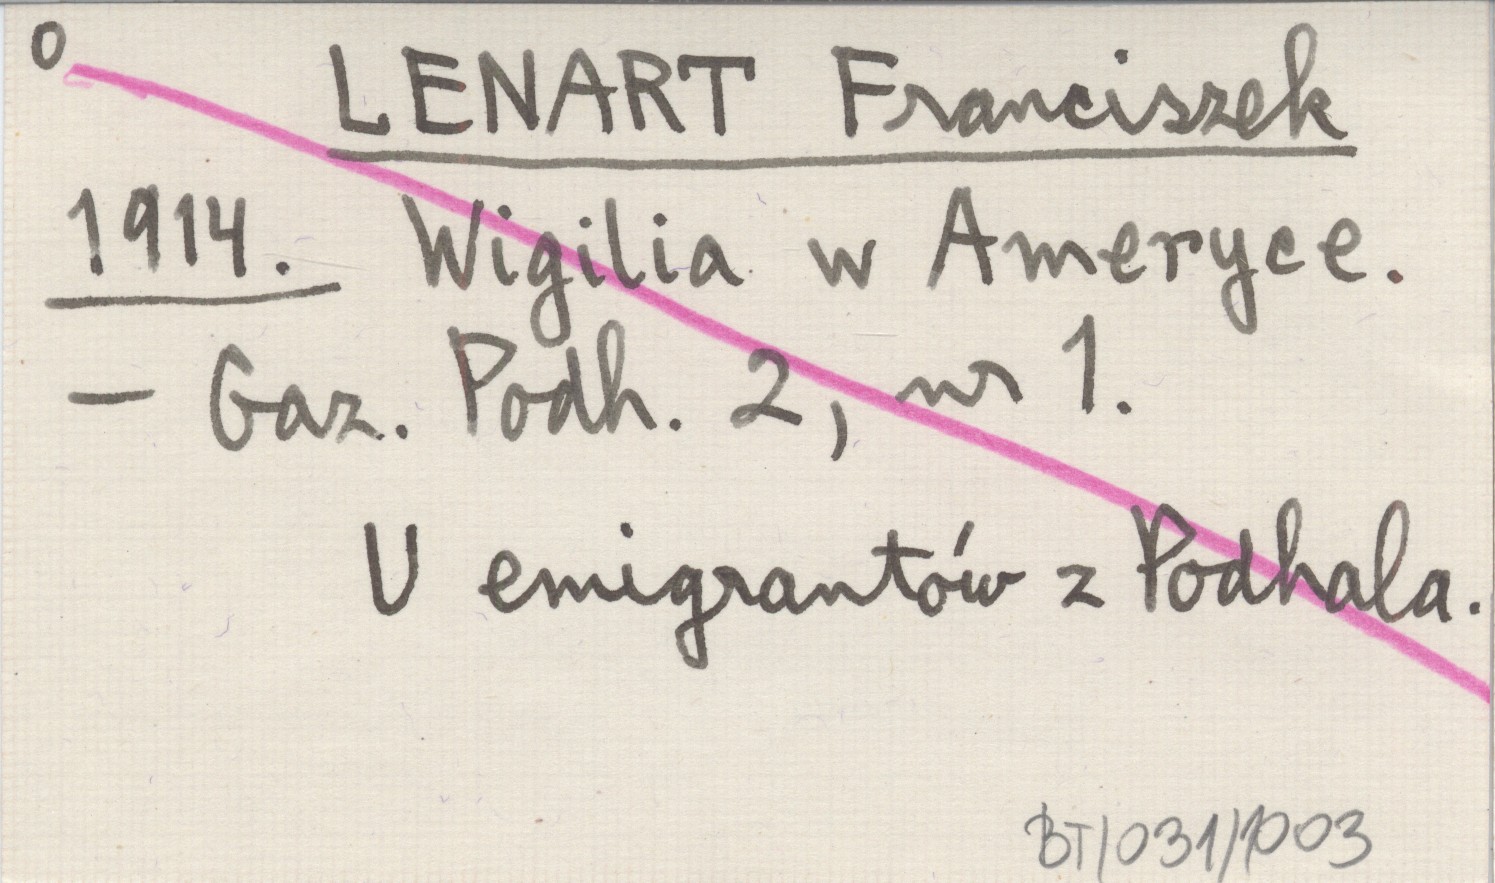 O
LENART Franciszek
1914. Wigilia w Ameryce.
— Gaz. Podh. 2, nr 1.
U emigrantów z Podhala.
BT/031/1003